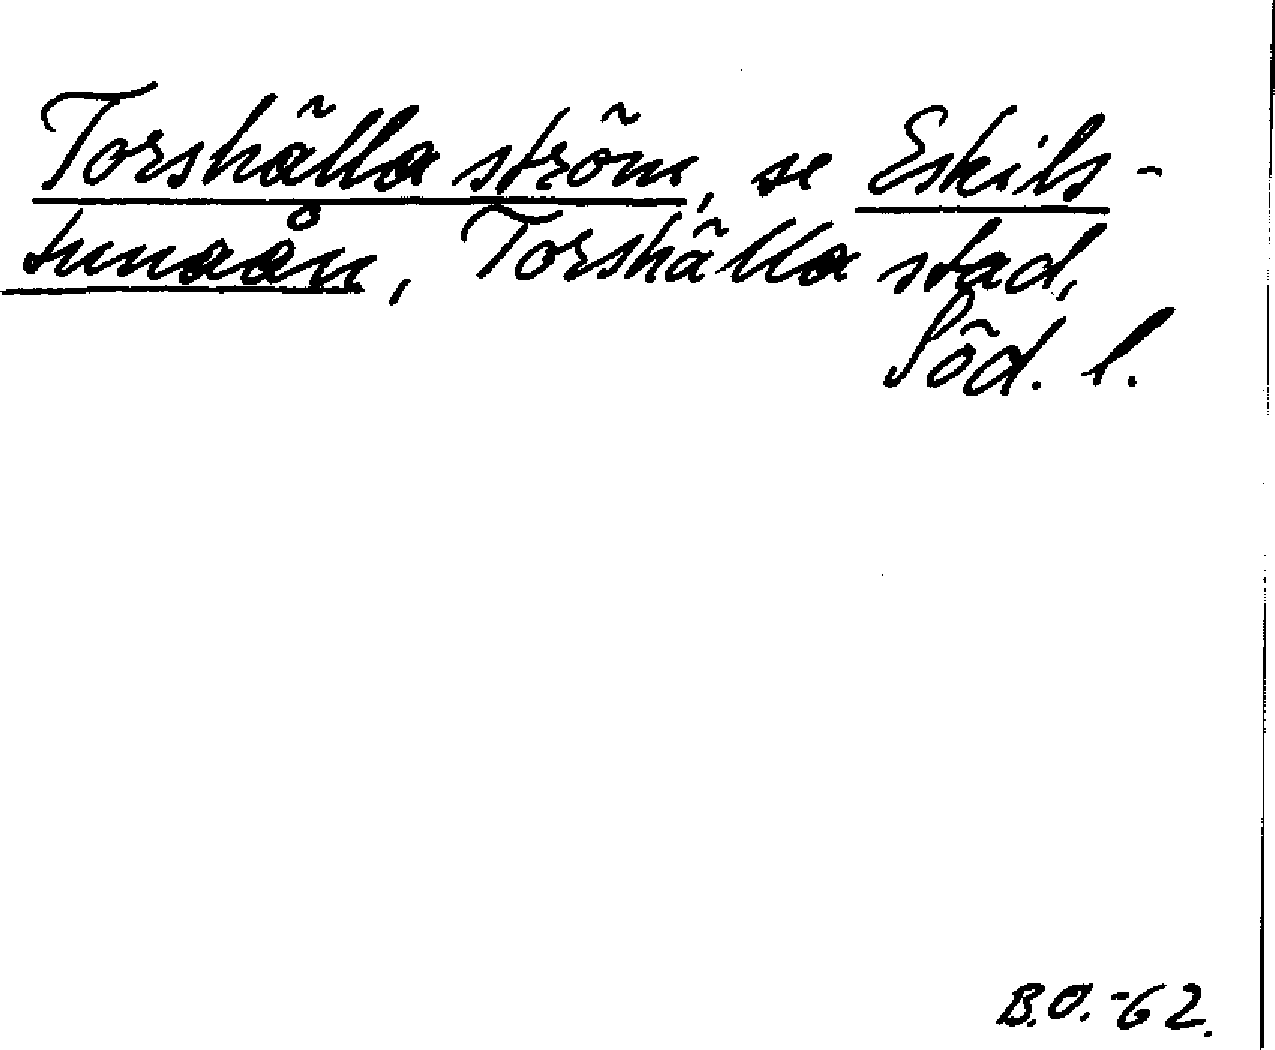 Torshälla ström, se Eskils-
tunaån, Torshälla stad,
Söd. l.
B.O.-62.